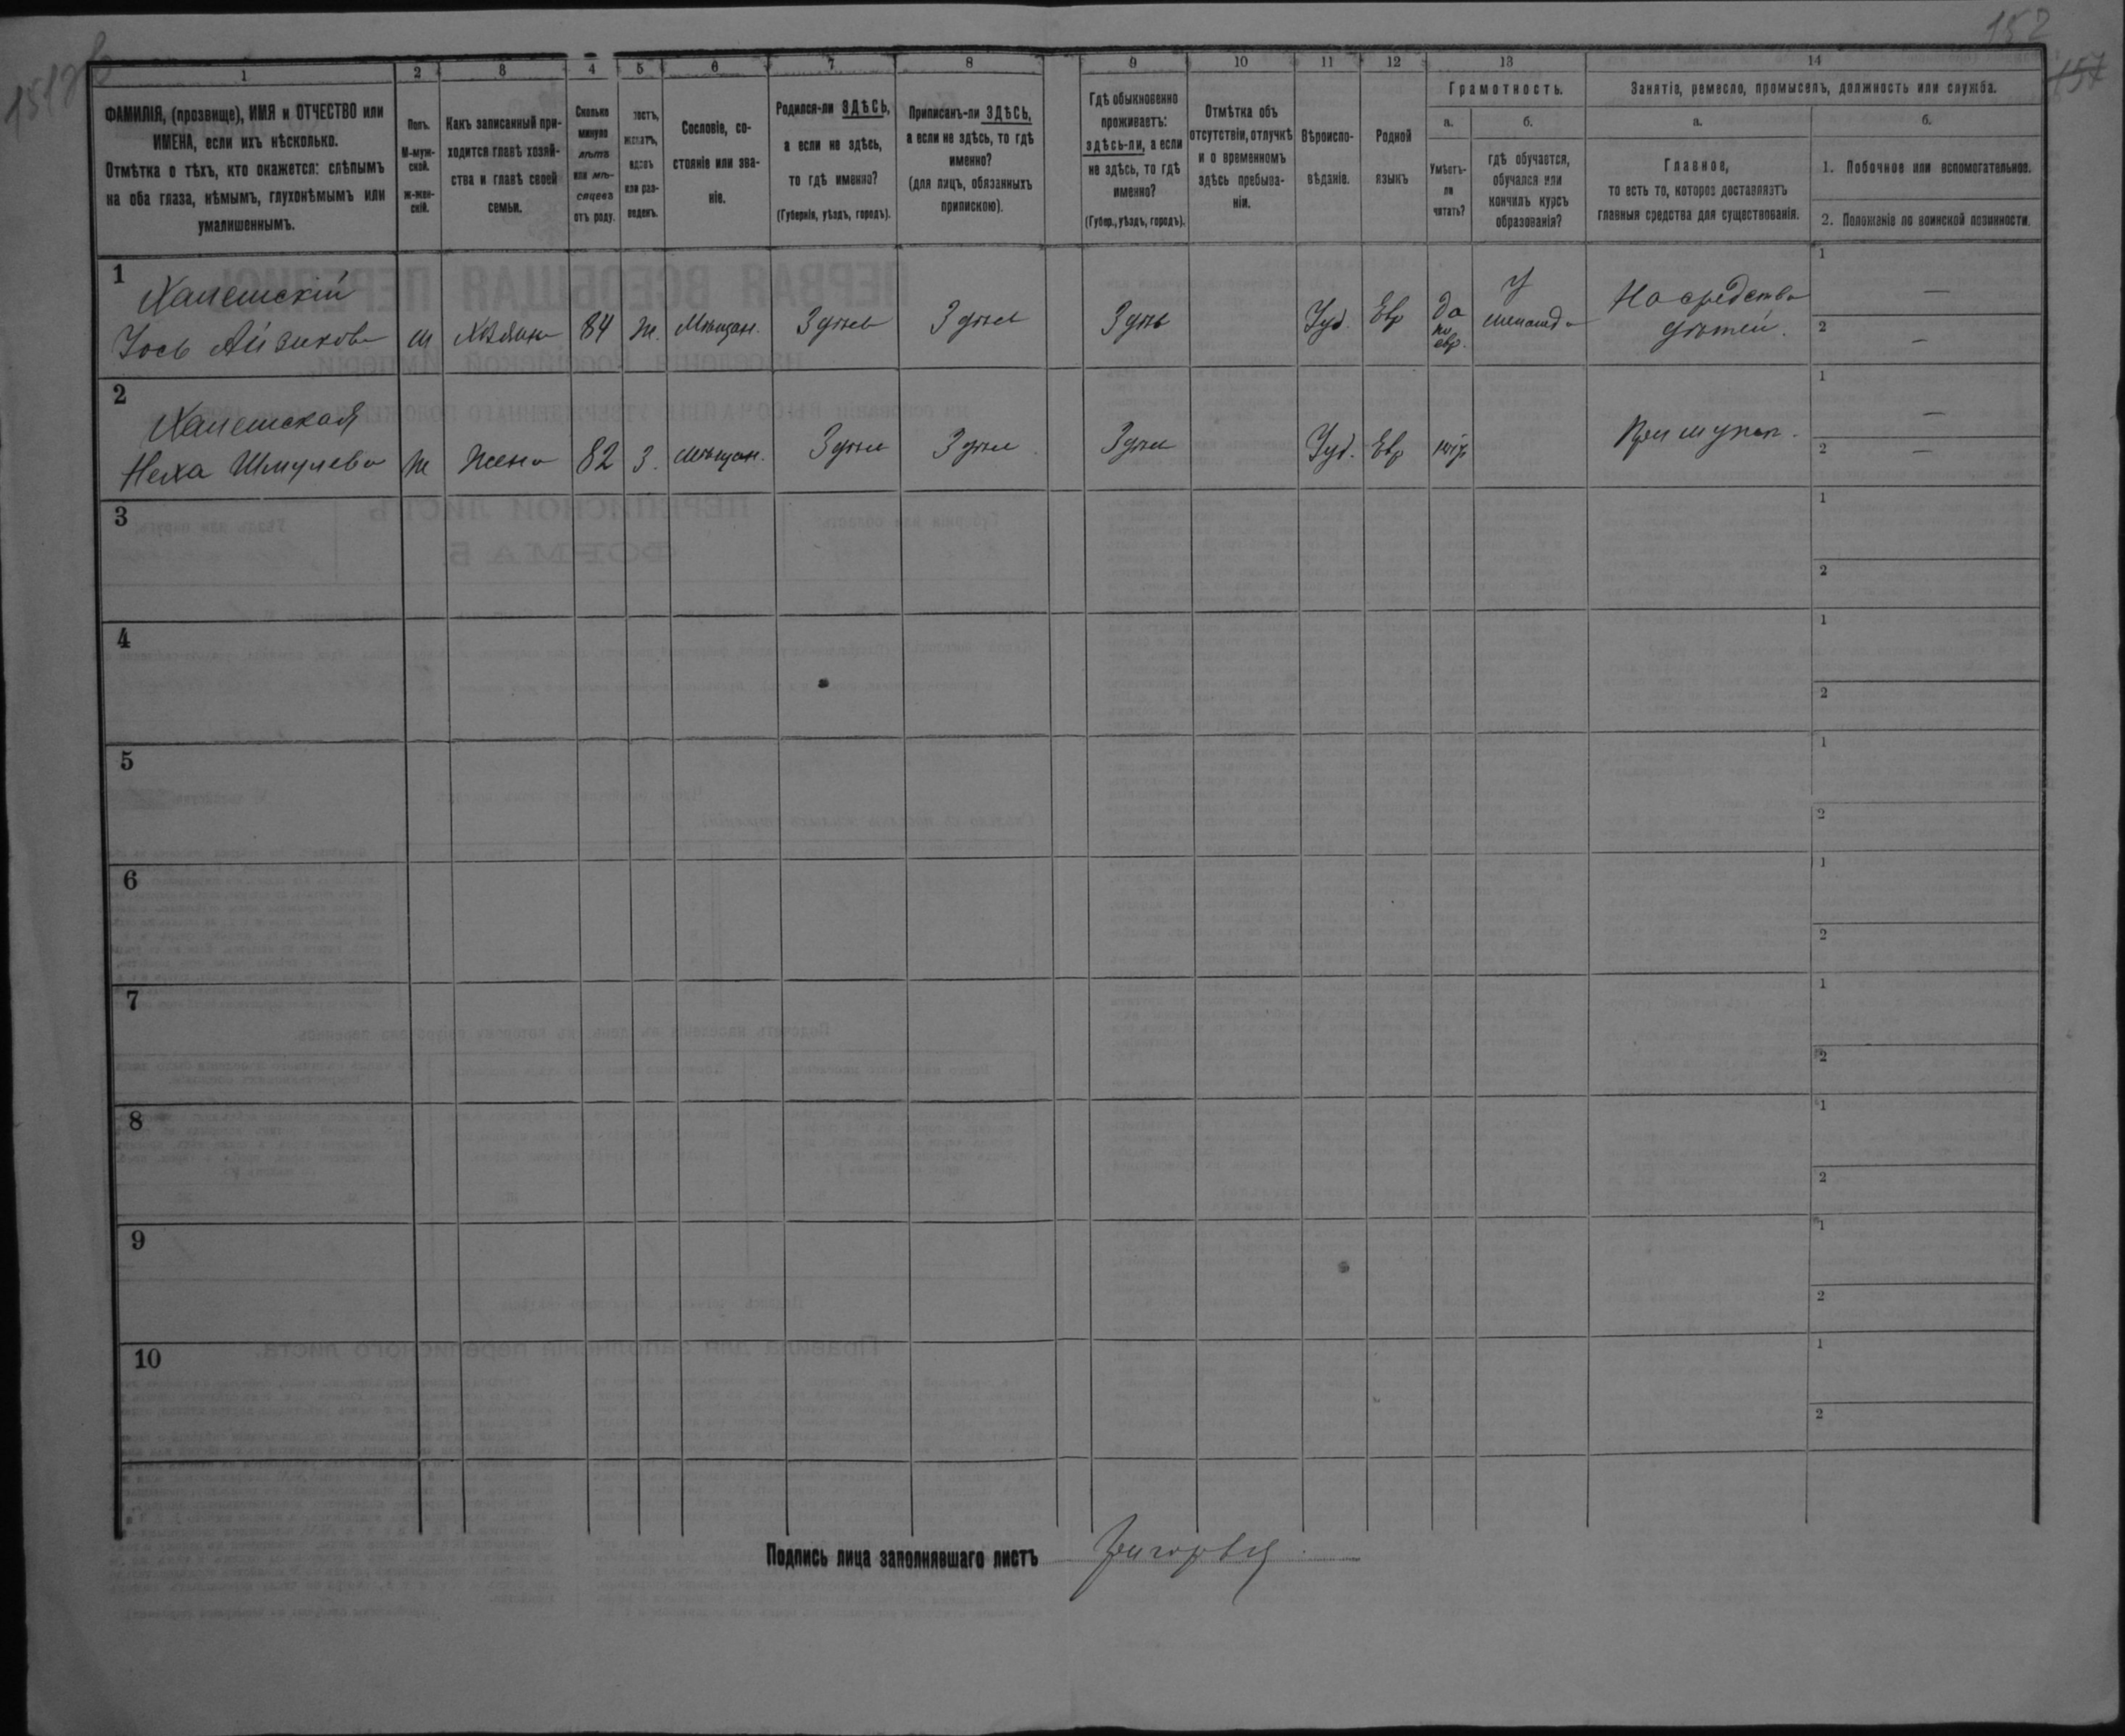 152
157
1 2 3 4 5 6 7 8 9 10 11 12 13 14
ФАМИЛІЯ, (прозвище), ИМЯ и ОТЧЕСТВО или
ИМЕНА, если ихъ нѣсколько.
Отмѣтка о тѣхъ, кто окажется: слѣпымъ
на оба глаза, нѣмымъ, глухонѣмымъ или
умалишеннымъ.
Полъ.
М-муж-
ской.
ж-жен-
скій.
Какъ записанный при-
ходится главѣ хозяй-
ства и главѣ своей
семьи.
Сколько
минуло
лѣтъ
или мѣ-
сяцевъ
отъ роду.
женатъ,
вдовъ
или раз-
веденъ.
Сословіе, со-
стояніе или зва-
ніе.
Родился-ли ЗДѢСЬ,
а если не здѣсь,
то гдѣ именно?
(Губернія, уѣздъ, городъ).
Приписанъ-ли ЗДѢСЬ,
а если не здѣсь, то гдѣ
именно?
(для лицъ, обязанныхъ
припискою).
Гдѣ обыкновенно
проживаетъ:
здѣсь-ли, а если
не здѣсь, то гдѣ
именно?
(Губер., уѣздъ, городъ).
Отмѣтка объ
отсутствіи, отлучкѣ
и о временномъ
здѣсь пребыва-
ніи.
Вѣроиспо-
вѣданіе.
Родной
языкъ
Грамотность.
а.
Умѣетъ-
ли
читать?
б.
гдѣ обучается,
обучался или
кончилъ курсъ
образованія?
Занятіе, ремесло, промыселъ, должность или служба.
а.
Главное,
то есть то, которое доставляетъ
главныя средства для существованія.
б.
1. Побочное или вспомогательное.
2. Положеніе по воинской повинности.
1
Іось м 84 ж. Мѣщан. Здѣсь Здѣсь Здѣсь Іуд. Евр да
по
евр.
У
меламда
На средства
дѣтей.
1 —
2 —
2
Шмулева ж Жена 82 З. Мѣщан. Здѣсь Здѣсь Здѣсь Іуд. Евр нѣт
При мужѣ.
1 —
2 —
3
1
2
4
1
2
5
1
2
6
1
2
7
1
2
8
1
2
9
1
2
10
1
2
Подпись лица заполнявшаго листъ